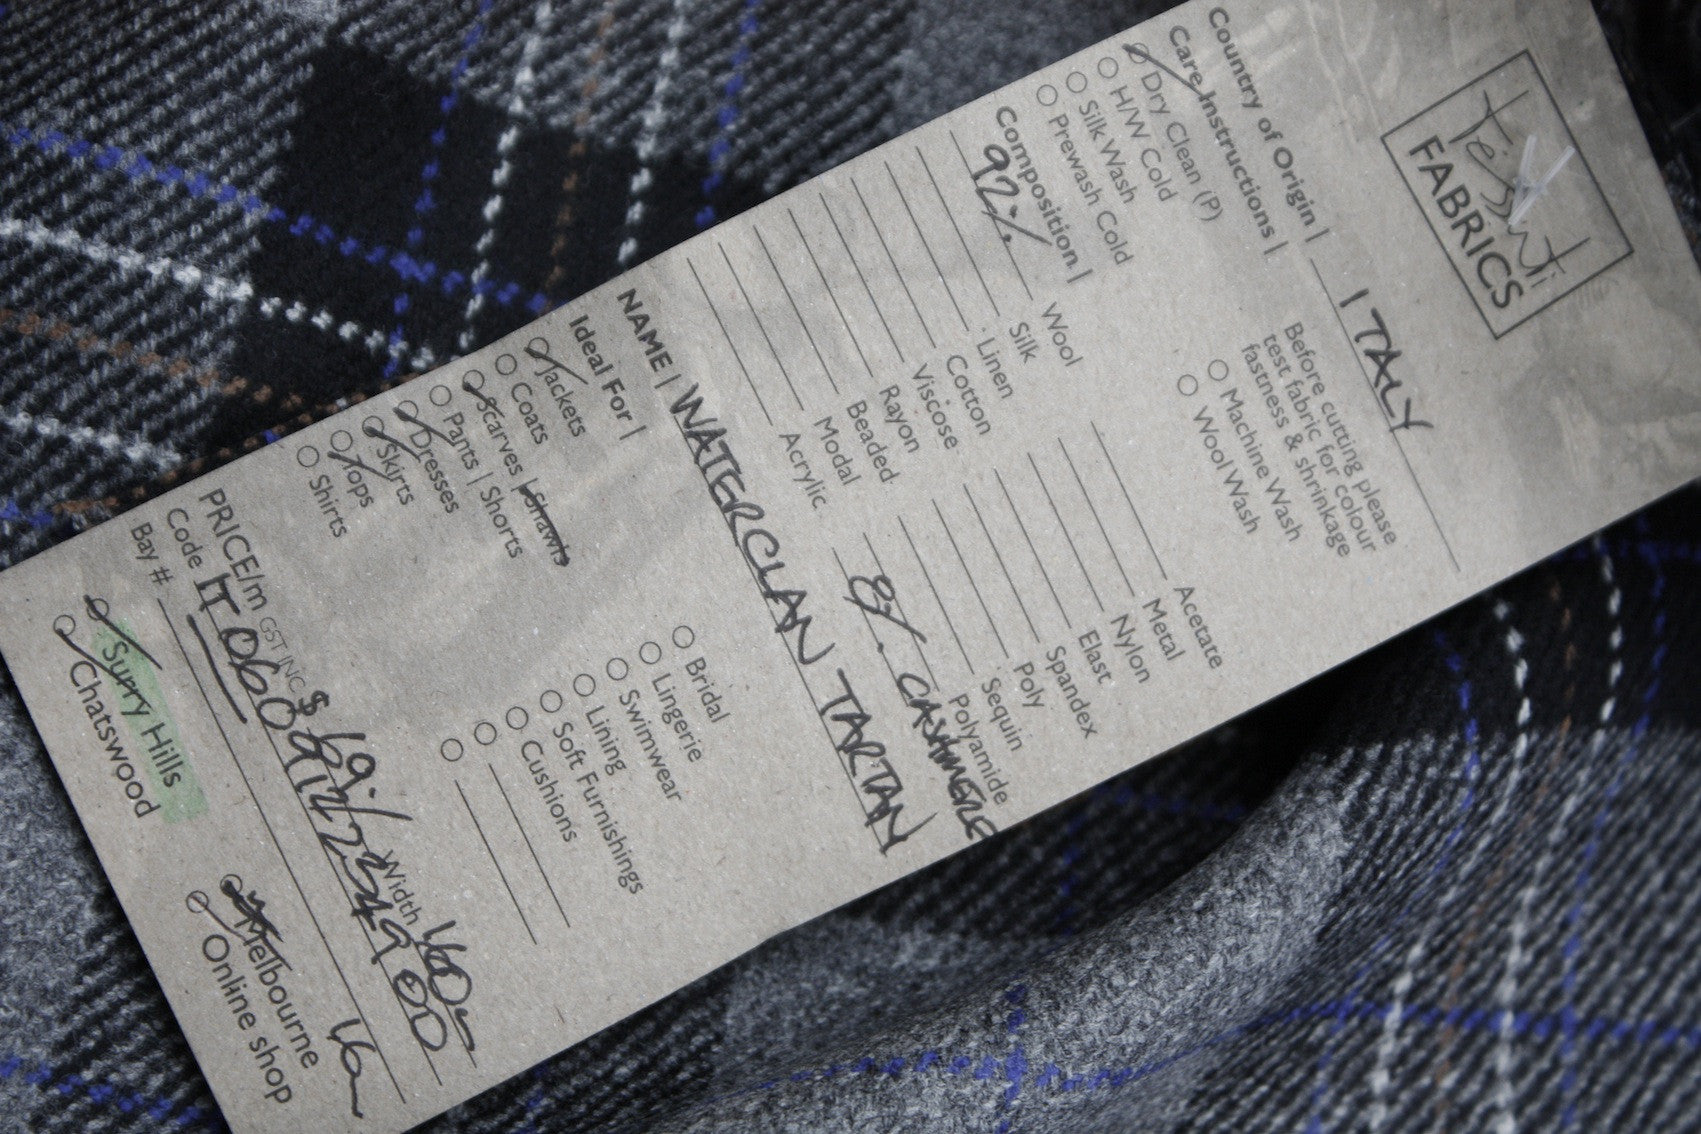 Tessuti
FABRICS
Country of Origin | ITALY
Care Instructions |
Dry Clean (P)
H/W Cold
Silk Wash
Prewash Cold
Before cutting please
test fabric for colour
fastness & shrinkage
Machine Wash
Wool Wash
Composition |
92% Wool
Silk
Linen
Cotton
Viscose
Rayon
Beaded
Modal
Acrylic
Acetate
Metal
Nylon
Elast
Spandex
Poly
Sequin
Polyamide
8% CASHMERE
NAME | WATERCLAN TARTAN
Ideal For |
Jackets
Coats
Scarves | Shawls
Pants | Shorts
Dresses
Skirts
Tops
Shirts
Bridal
Lingerie
Swimwear
Lining
Soft Furnishings
Cushions
PRICE/m GST INC $69./ Width 160cm
Code IT060912234900
Bay #
Surry Hills
Chatswood
Melbourne
Online shop